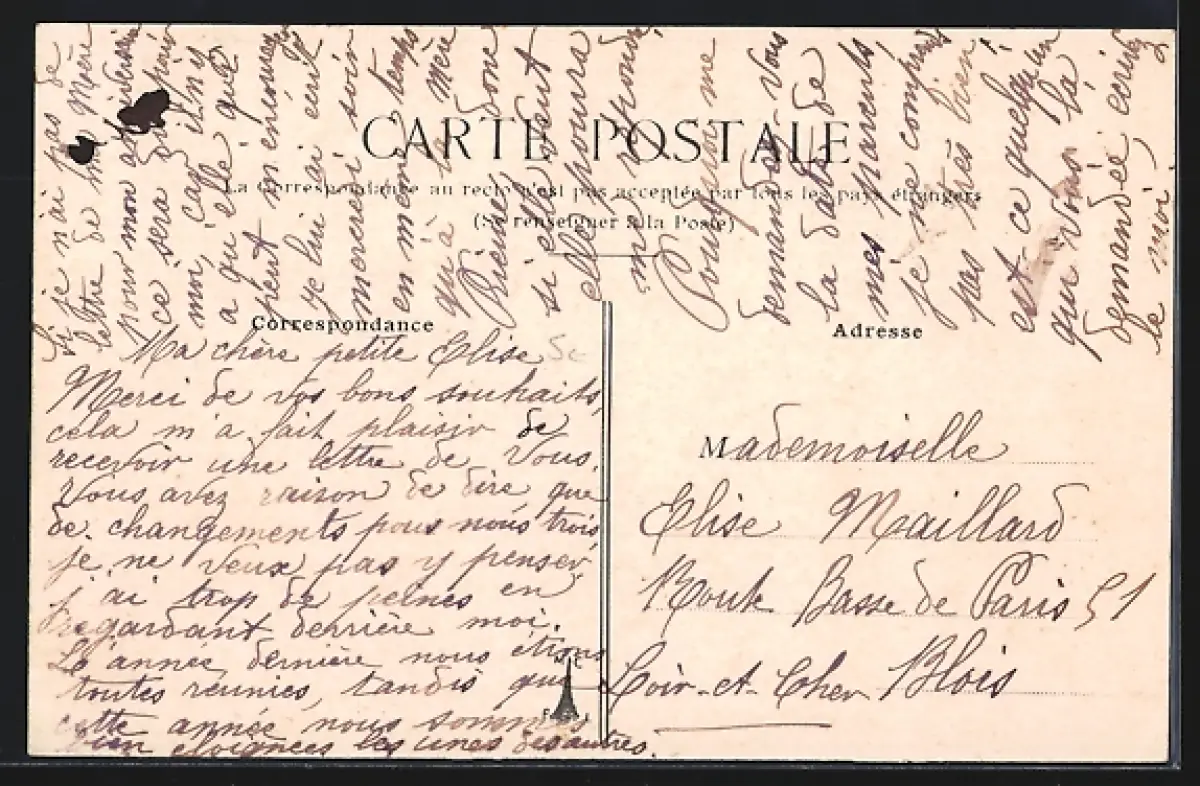 CARTE POSTALE
La Correspondance au recto n'est pas acceptée par tous les pays étrangers
(Se renseigner à la Poste)
Correspondance
Ma chère petite Elise
Merci de vos bons souhaits,
cela m'a fait plaisir de
recevoir une lettre de vous.
Vous avez raison de dire que
de changements pour nous trois
je ne veux pas y penser,
j'ai trop de peines en
regardant derrière moi.
L'année dernière nous étions
toutes réunies, tandis que
cette année nous sommes
bien eloignées les unes des autres.
Si je n'ai pas de
lettre de ma Mère
pour mon
ce sera
moi, car il n'y
a qu'elle qui
peut m'encourager
je lui ai écrit
merci soir
en même temps
qu'à la mère
donc
si elle veut
elle pourra
m'
Pourquoi me
demandez-vous
la date de
mes parents
je ne comprends
pas très bien
est-ce quelqu'un
qui vous l'a
demandé écrivez
le moi,
Adresse
Mademoiselle
Elise Maillard
Route Basse de Paris 51
Loir-et-Cher Blois